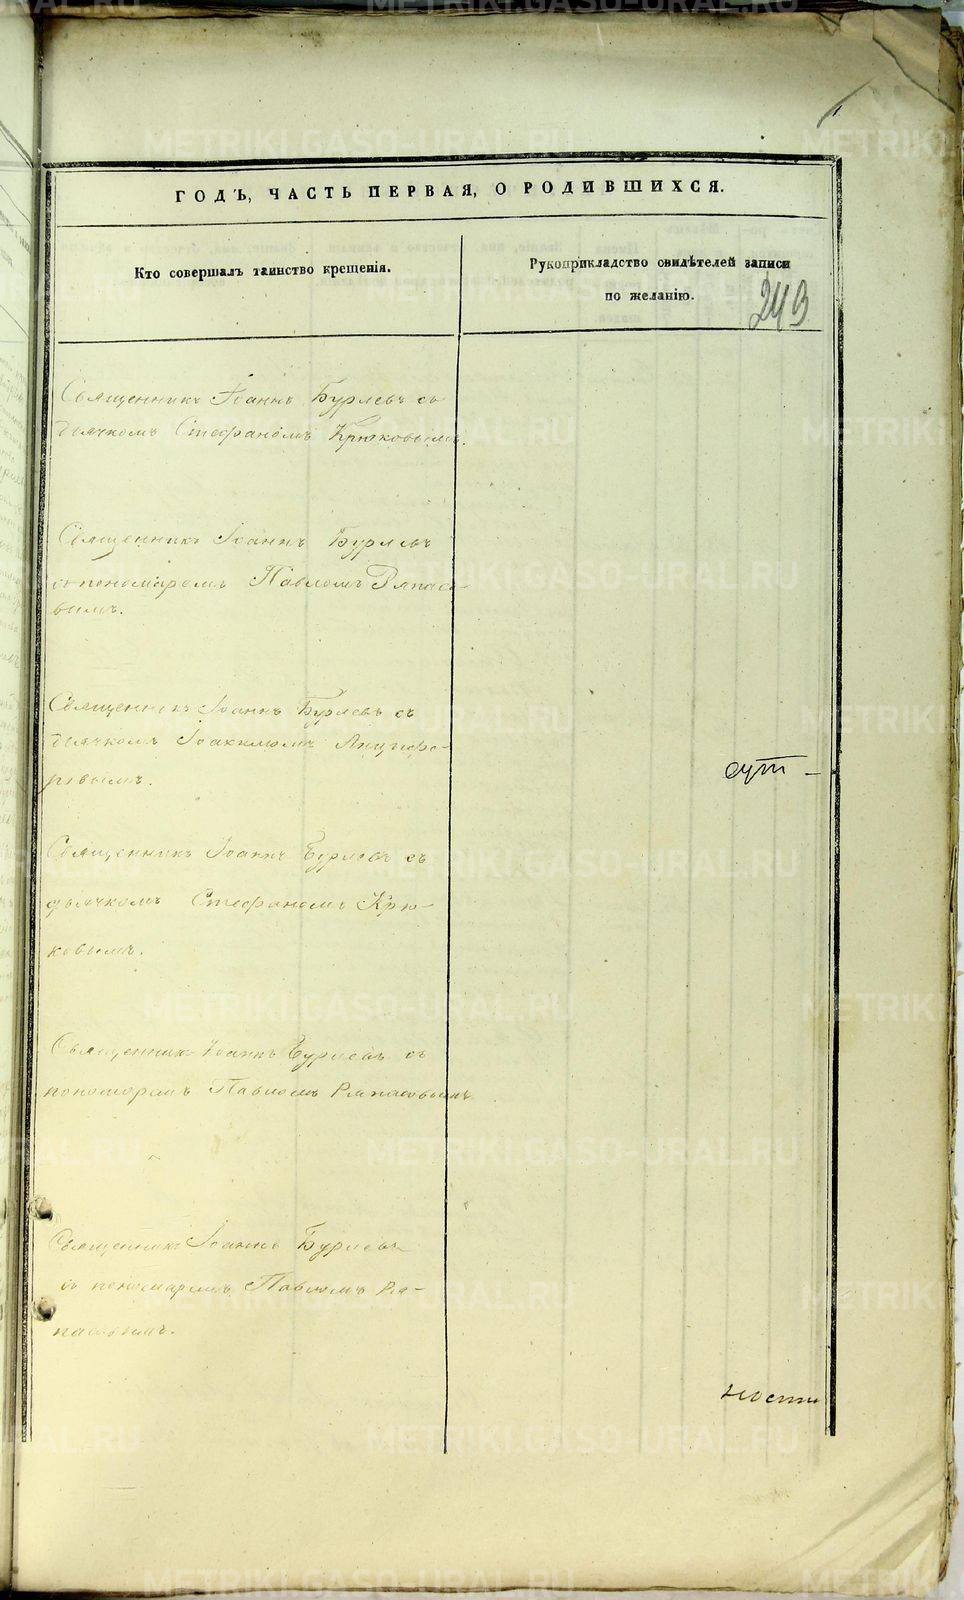 ГОДЪ, ЧАСТЬ ПЕРВАЯ, О РОДИВШИХСЯ.
Кто совершалъ таинство крещенія.
Рукоприкладство свидѣтелей записи
по желанію.
249
Священникъ Іоаннъ Бурлевъ съ
дьячкомъ Стефаномъ Крюковымъ.
Священникъ Іоаннъ Бурлевъ
съ пономаремъ Павломъ Ряпасо-
вымъ.
Священникъ Іоаннъ Бурлевъ съ
дьячкомъ Іоакимомъ Анцыфе-
ровымъ.
Священникъ Іоаннъ Бурлевъ съ
дьячкомъ Стефаномъ Крю-
ковымъ.
Священникъ Іоаннъ Бурлевъ съ
пономаремъ Павломъ Ряпасовымъ
Священникъ Іоаннъ Бурлевъ
съ пономаремъ Павломъ Ря-
пасовымъ.
ности
METRIKI.GASO-URAL.RU